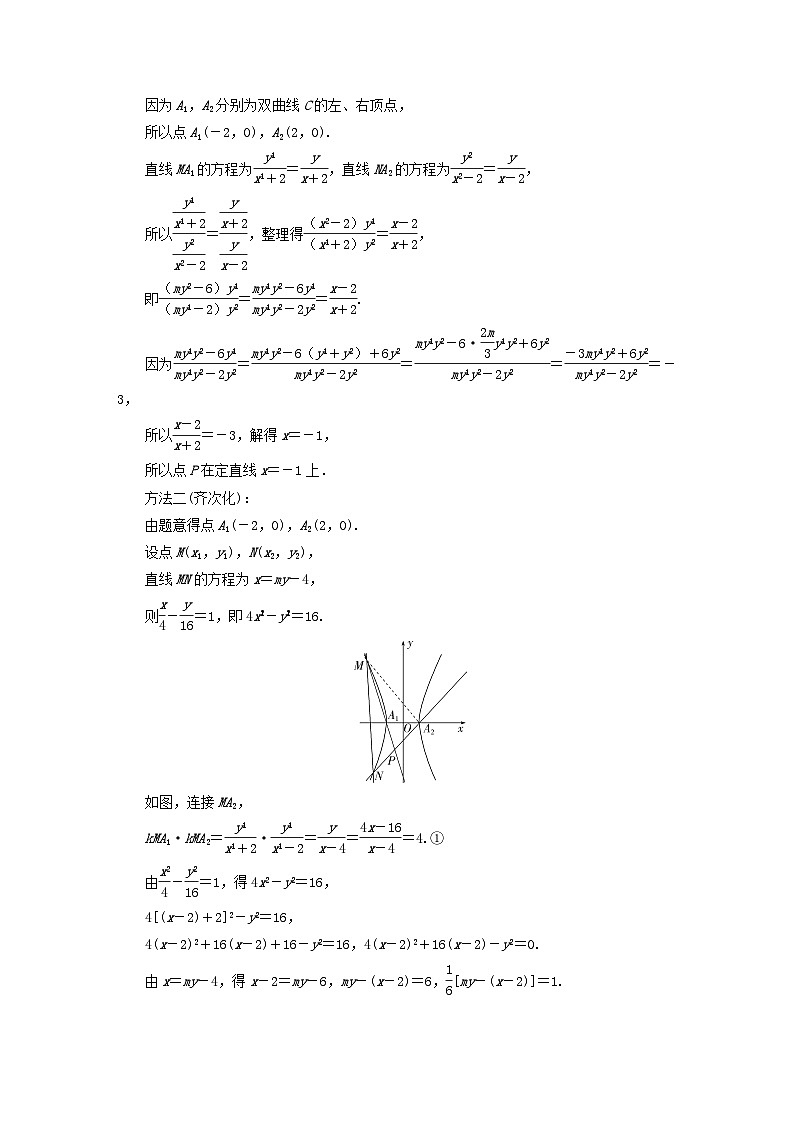 因为A₁,A₂分别为双曲线C的左、右顶点,
所以点A₁(-2,0),A₂(2,0).
直线MA₁的方程为\frac{y1}{x1+2}=\frac{y}{x+2},直线NA₂的方程为\frac{y2}{x2-2}=\frac{y}{x-2},
所以\frac{\frac{y1}{x1+2}}{\frac{y2}{x2-2}}=\frac{\frac{y}{x+2}}{\frac{y}{x-2}},整理得\frac{(x2-2)y1}{(x1+2)y2}=\frac{x-2}{x+2},
即\frac{(my2-6)y1}{(my1-2)y2}=\frac{my1y2-6y1}{my1y2-2y2}=\frac{x-2}{x+2}.
因为\frac{my1y2-6y1}{my1y2-2y2}=\frac{my1y2-6(y1+y2)+6y2}{my1y2-2y2}=\frac{my1y2-6·\frac{2m}{3}y1y2+6y2}{my1y2-2y2}=\frac{-3my1y2+6y2}{my1y2-2y2}=-
3,
所以\frac{x-2}{x+2}=-3,解得x=-1,
所以点P在定直线x=-1上.
方法二(齐次化):
由题意得点A₁(-2,0),A₂(2,0).
设点M(x₁,y₁),N(x₂,y₂),
直线MN的方程为x=my-4,
则\frac{x}{4}-\frac{y}{16}=1,即4x²-y²=16.
y
M
A₁
O
A₂
x
P
N
如图,连接MA₂,
kMA₁·kMA₂=\frac{y1}{x1+2}·\frac{y1}{x1-2}=\frac{y}{x-4}=\frac{4x-16}{x-4}=4.①
由\frac{x2}{4}-\frac{y2}{16}=1,得4x²-y²=16,
4[(x-2)+2]²-y²=16,
4(x-2)²+16(x-2)+16-y²=16,4(x-2)²+16(x-2)-y²=0.
由x=my-4,得x-2=my-6,my-(x-2)=6,\frac{1}{6}[my-(x-2)]=1.